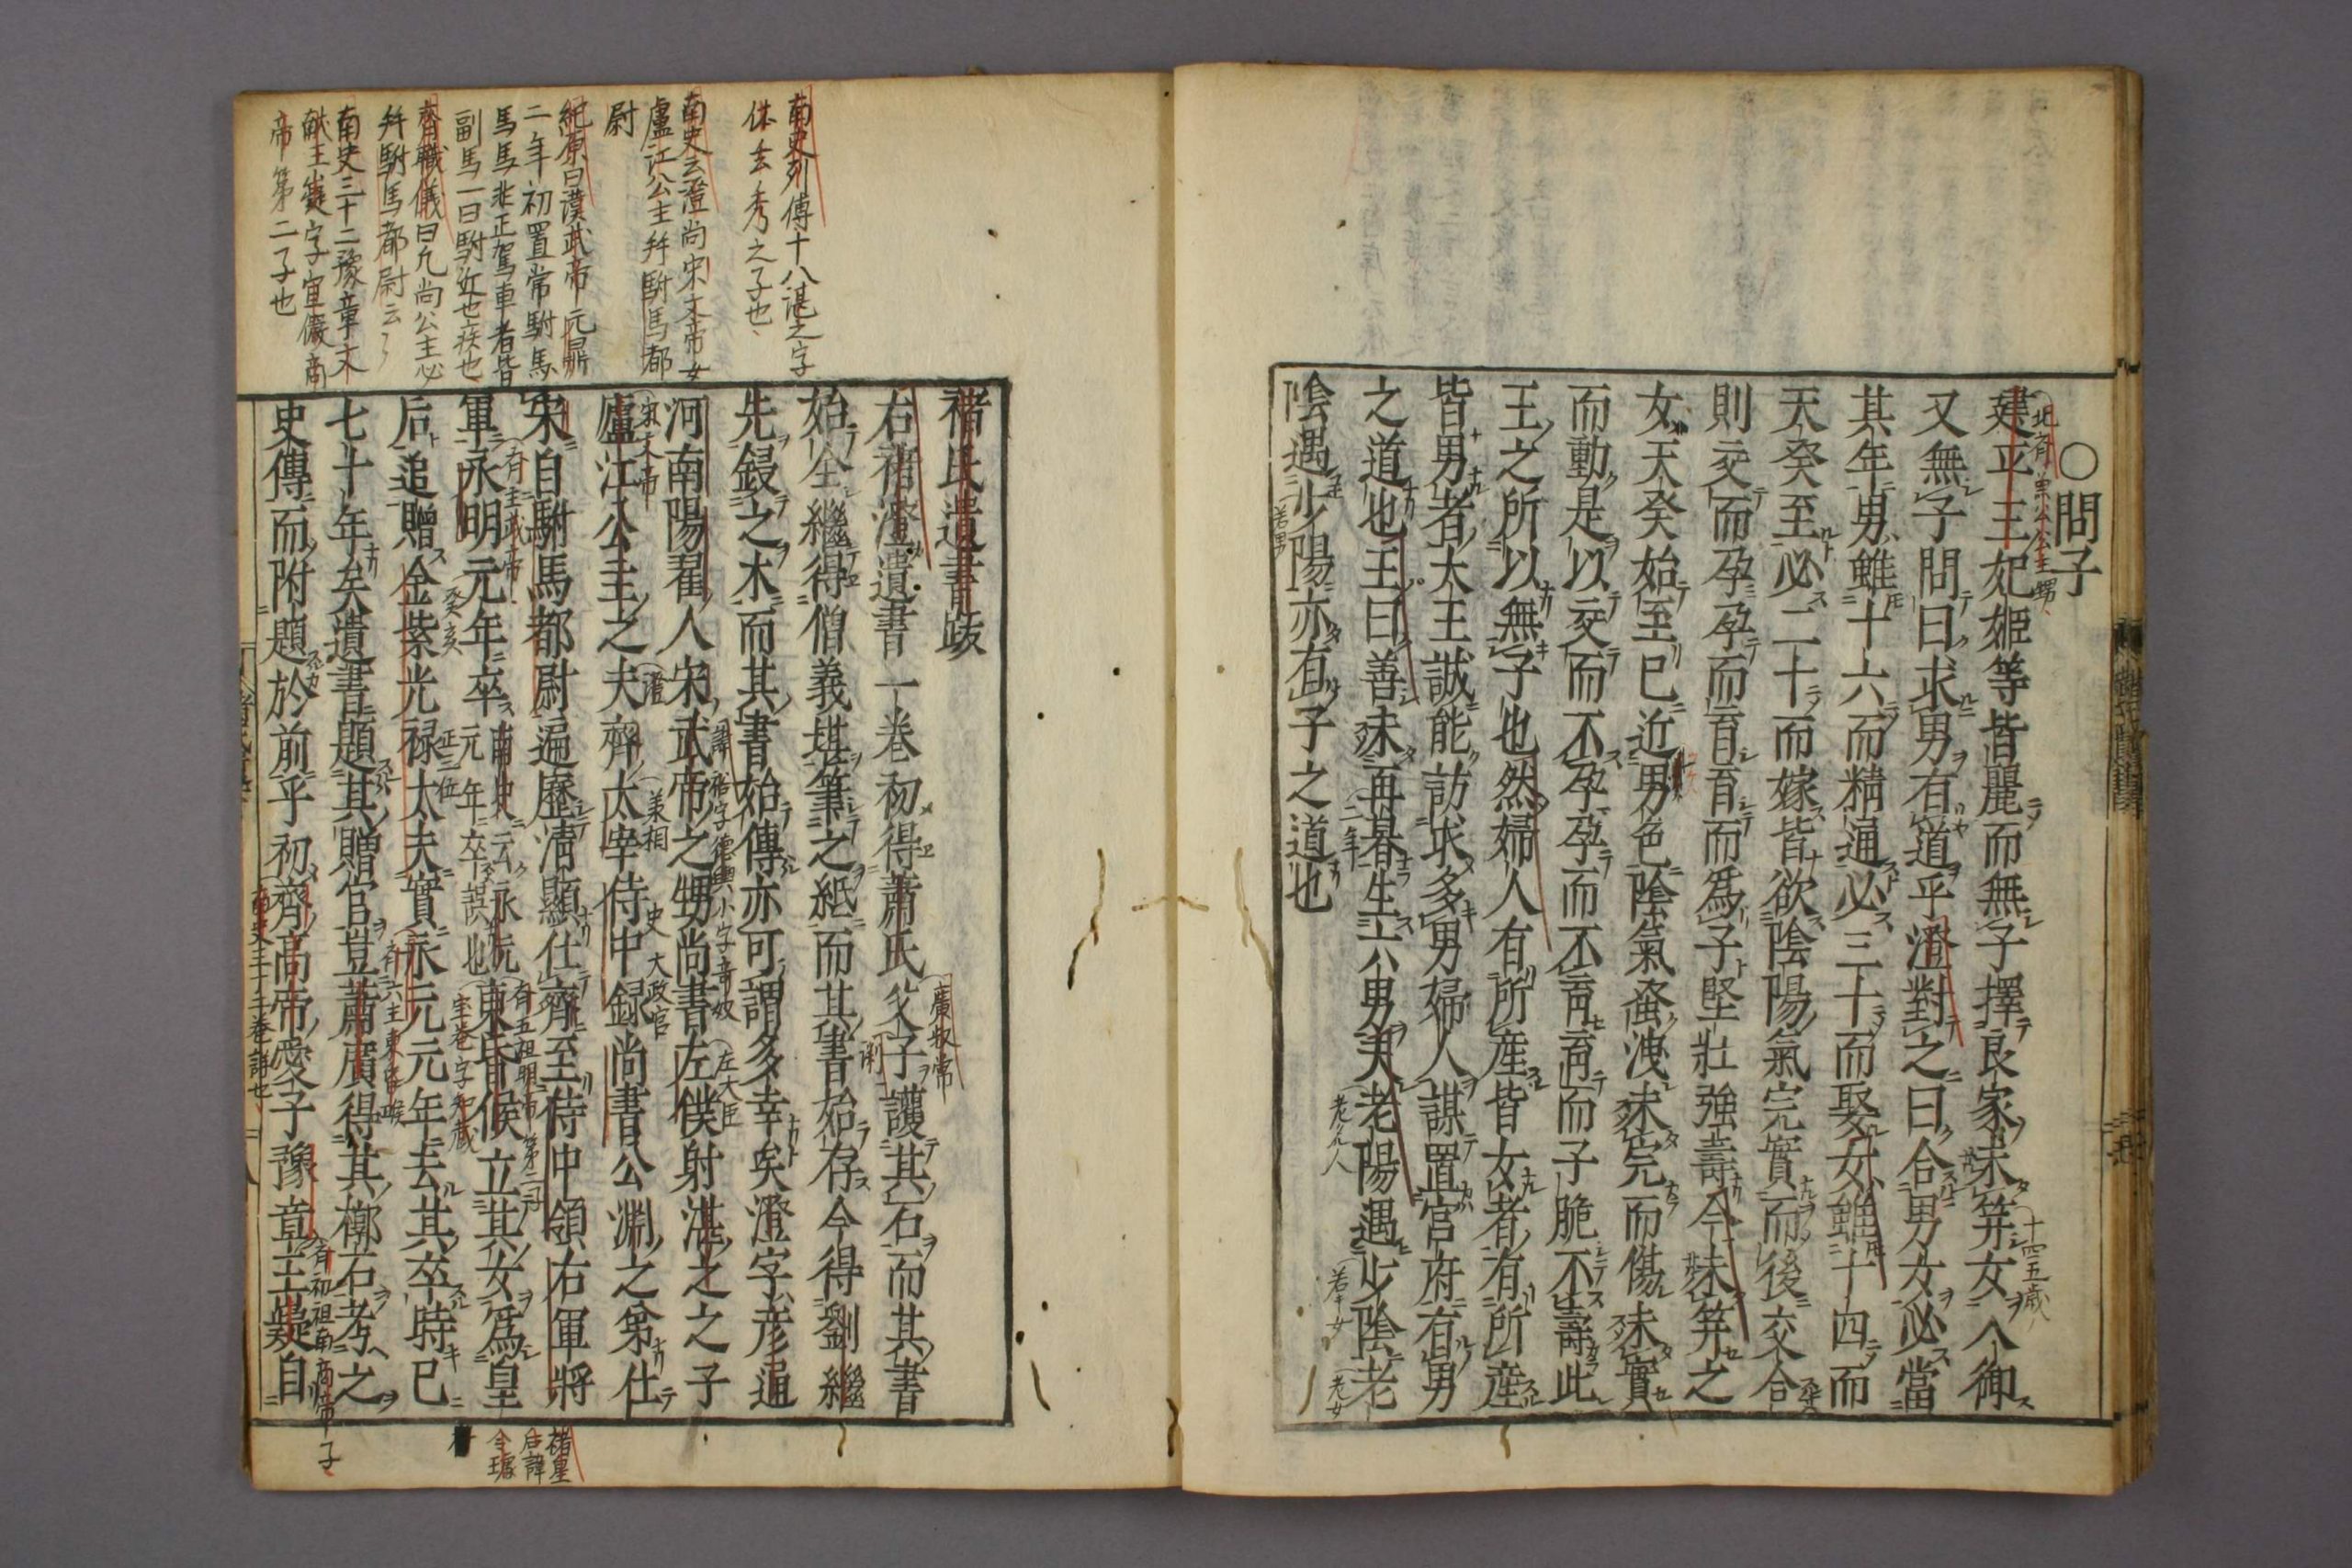 ○問子
建平王妃姬等皆麗而無子擇良家未笄女入御
又無子問曰求男有道乎澄對之曰合男女必當
其年男雖十六而精通必三十而娶女雖十四而
天癸至必二十而嫁皆欲陰陽氣完實而後交合
則交而孕孕而育育而爲子堅壯強壽今未笄之
女天癸始至已近男色陰氣蚤洩未完而傷未實
而動是以交而不孕孕而不育育而子脆不壽此
王之所以無子也然婦人有所產皆女者有所產
皆男者大王誠能訪求多男婦人謀置官府有男
之道也王曰善未再朞生六男夫老陽遇少陰老
陰遇少陽亦有子之道也
南史列傳十八湛之字
休玄秀之子也
南史云澄尚宋文帝女
盧江公主幷駙馬都
尉
紀原曰漢武帝元鼎
二年初置常駙馬
馬馬非正駕車者皆
副馬一曰駙近也疾也
齊職儀曰凡尚公主必
幷駙馬都尉云々
南史三十二豫章文
獻王嶷字宣儼高
帝第二子也
褚氏遺書跋
右褚澄遺書一卷初得蕭氏父子護其石而其書
始全繼得僧義堪筆之紙而其書始存今得劉繼
先鋟之木而其書始傳亦可謂多幸矣澄字彦通
河南陽翟人宋武帝之甥尚書左僕射湛之之子
廬江公主之夫齊太宰侍中録尚書公淵之弟仕
宋自駙馬都尉遍歷清顯仕齊至侍中領右軍將
軍永明元年卒南史云永元元年卒誤也東昏侯立其女爲皇
后追贈金紫光禄大夫實永元元年去其卒時已
七十年矣遺書題其贈官豈蕭廣得其槨石考之
史傳而附題於前乎初齊高帝愛子豫章王嶷自
褚皇
后諱
令璩